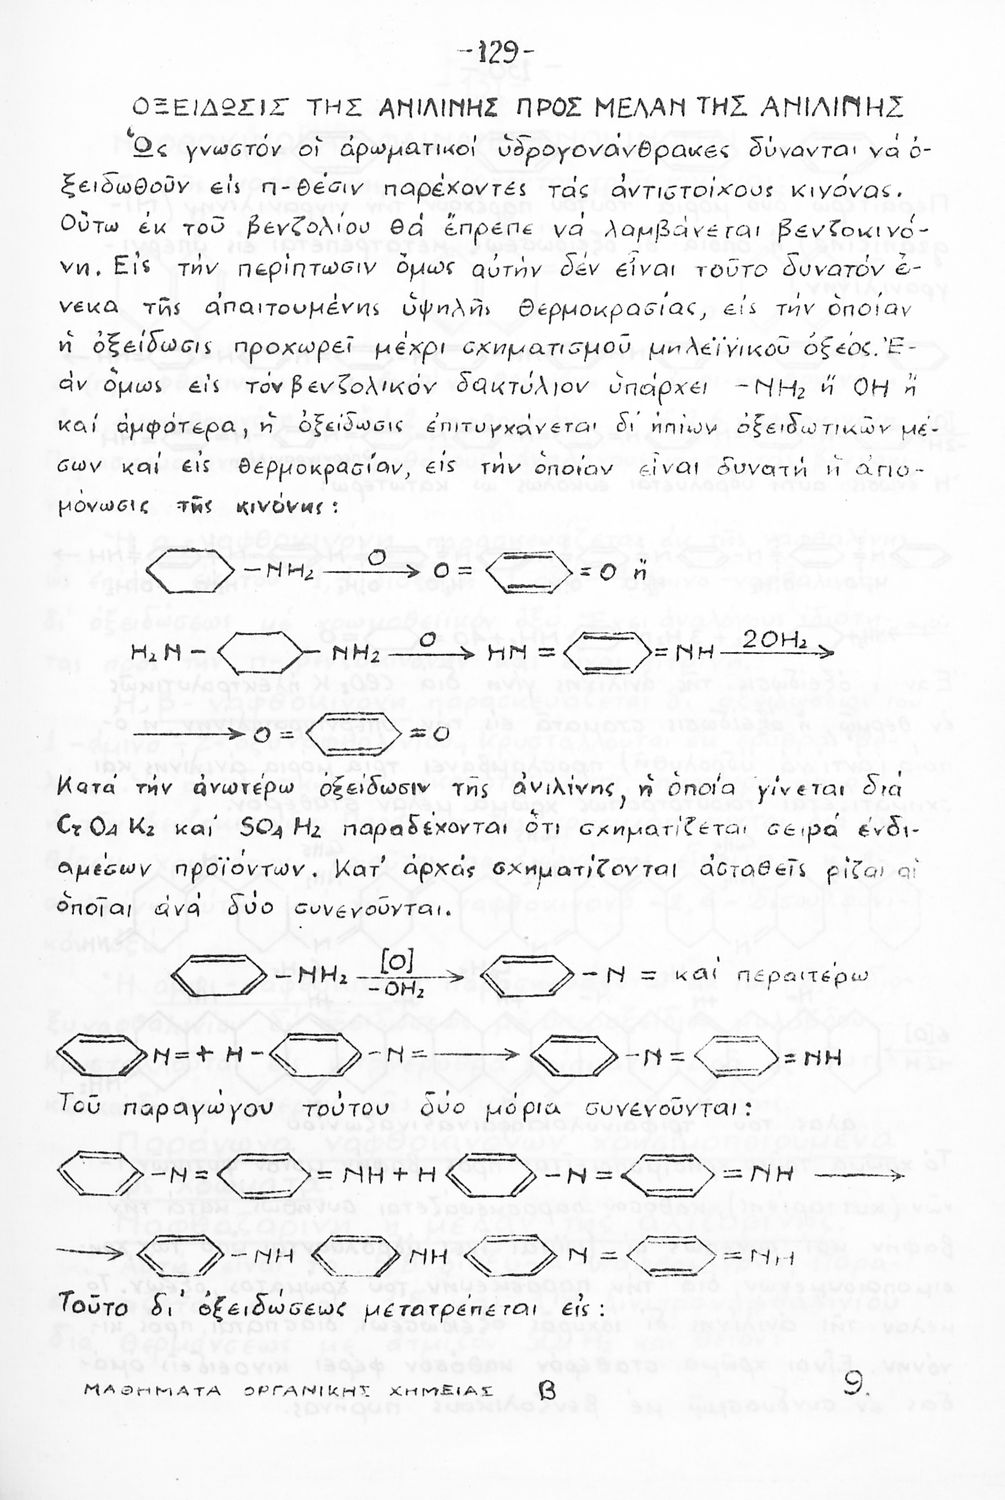 -129-
ΟΞΕΙΔΩΣΙΣ ΤΗΣ ΑΝΙΛΙΝΗΣ ΠΡΟΣ ΜΕΛΑΝ ΤΗΣ ΑΝΙΛΙΝΗΣ
Ὡς γνωστόν οἱ ἀρωματικοί ὑδρογονάνθρακες δύνανται νά ὀ-
ξειδωθοῦν εἰς π-θέσιν παρέχοντες τάς ἀντιστοίχους κινόνας.
Οὕτω ἐκ τοῦ βενζολίου θά ἔπρεπε νά λαμβάνεται βενζοκινό-
νη. Εἰς τήν περίπτωσιν ὅμως αὐτήν δέν εἶναι τοῦτο δυνατόν ἕ-
νεκα τῆς ἀπαιτουμένης ὑψηλῆς θερμοκρασίας, εἰς τήν ὁποίαν
ἡ ὀξείδωσις προχωρεῖ μέχρι σχηματισμοῦ μηλεϊνικοῦ ὀξέος. Ἐ-
άν ὅμως εἰς τόν βενζολικόν δακτύλιον ὑπάρχει -NH₂ ἤ OH ἤ
καί ἀμφότερα, ἡ ὀξείδωσις ἐπιτυγχάνεται δι' ἠπίων ὀξειδωτικῶν μέ-
σων καί εἰς θερμοκρασίαν, εἰς τήν ὁποίαν εἶναι δυνατή ἡ ἀπο-
μόνωσις τῆς κινόνης :
-NH₂ O → O = = O ἤ
H₂N - - NH₂ O → HN = = NH 2OH₂ →
→ O = = O
Κατά τήν ἀνωτέρω ὀξείδωσιν τῆς ἀνιλίνης, ἡ ὁποία γίνεται διά
CrO₄K₂ καί SO₄H₂ παραδέχονται ὅτι σχηματίζεται σειρά ἐνδι-
αμέσων προϊόντων. Κατ' ἀρχάς σχηματίζονται ἀσταθεῖς ρίζαι αἱ
ὁποῖαι ἀνά δύο συνενοῦνται.
-NH₂ [O] -OH₂ → - N = καί περαιτέρω
N= + H- -N= → -N= =NH
Τοῦ παραγώγου τούτου δύο μόρια συνενοῦνται :
-N= =NH + H -N= =NH →
→ -NH NH N= =NH
Τοῦτο δι' ὀξειδώσεως μετατρέπεται εἰς :
ΜΑΘΗΜΑΤΑ ΟΡΓΑΝΙΚΗΣ ΧΗΜΕΙΑΣ Β 9.